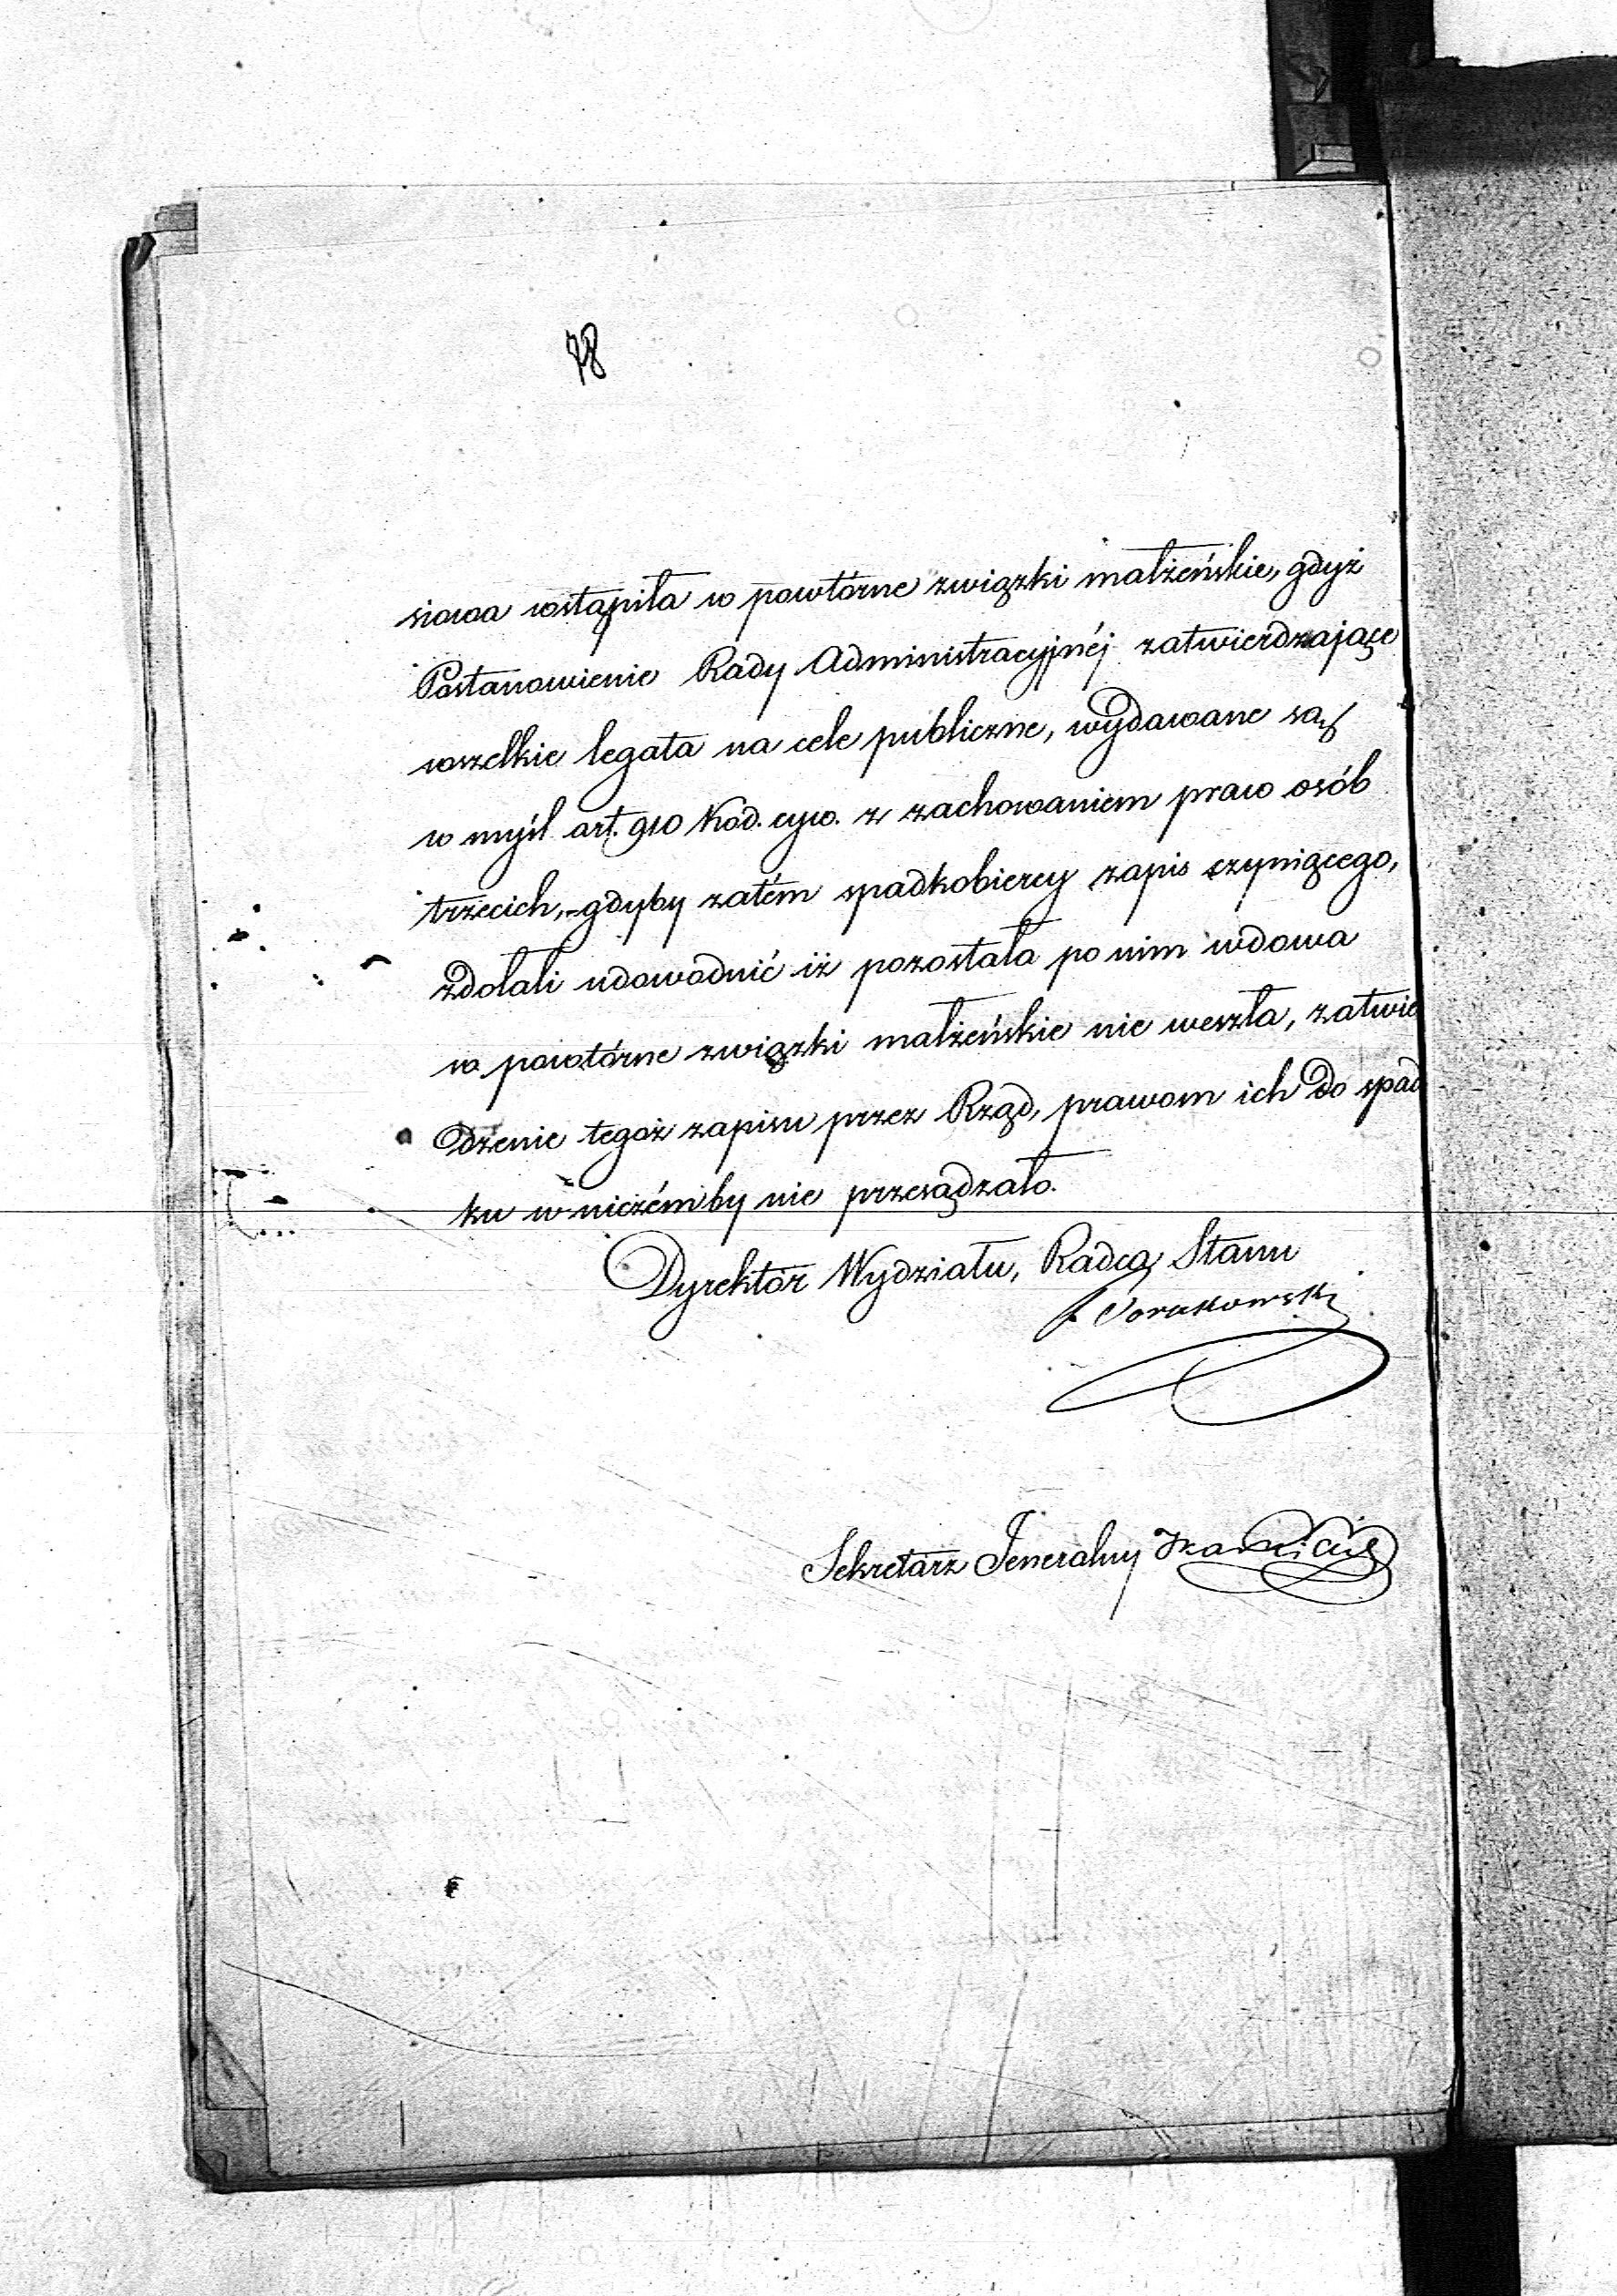 78
siowa wstąpiła w powtórne związki małżeńskie, gdyż
Postanowienie Rady Administracyjnéj zatwierdzające
wszelkie legata na cele publiczne, wydawane są
w myśl art. 910 Kod. cyw. z zachowaniem praw osób
trzecich, gdyby zatém spadkobiercy zapis czyniącego,
zdołali udowodnić iż pozostała po nim wdowa
w powtórne związki małżeńskie nie weszła, zatwie
dzenie tegoż zapisu przez Rząd, prawom ich do spad
ku w niczém by nie przesądzało.
Dyrektor Wydziału, Radca Stanu
Sekretarz Jeneralny